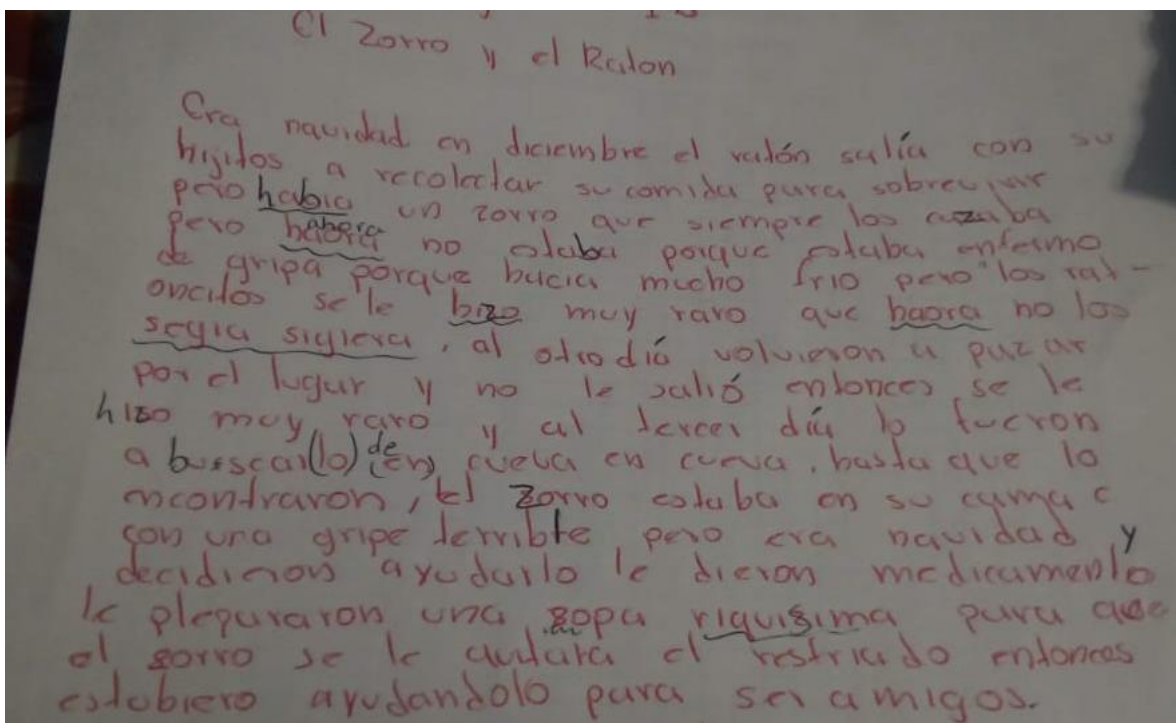 El Zorro y el Raton
Era navidad en diciembre el ratón salía con su
hijitos a recolectar su comida para sobrevivir
pero habia un zorro que siempre los cazaba
pero haora ahora no estaba porque estaba enfermo
de gripa porque hacia mucho frio pero los rat-
oncitos se le hizo muy raro que haora no los
segia sigiera, al otro dió volvieron a pazar
por el lugar y no le salió entonces se le
hizo muy raro y al tercer día lo fueron
a busscar(lo) de (en) cueva en cueva, hasta que lo
encontraron, el zorro estaba en su cama c
con una gripe terrible pero era navidad y
decidieron ayudarlo le dieron medicamento
le plepararon una sopa riquisima para que
el zorro se le quitara el restriado entonces
estobiero ayudandolo para ser amigos.